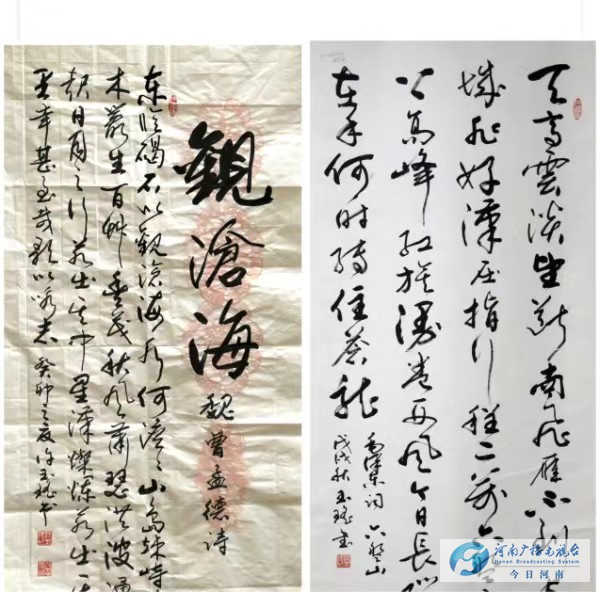 觀滄海
魏曹孟德詩
东临碣石以觀滄海水何澹々山岛竦峙
木叢生百艸豐茂秋风萧瑟洪波涌
起日月之行若出其中星漢燦烂若出
里幸甚至哉歌以咏志 癸卯之夏
天高雲淡望断南飞雁不到长
城非好漢屈指行程二万六盘
上高峰红旗漫卷西风今日长缨
在手何时缚住苍龙
毛泽东词六盘山
戊戌秋玉瑶書
河南广播电视台
Henan Broadcasting System
今日河南